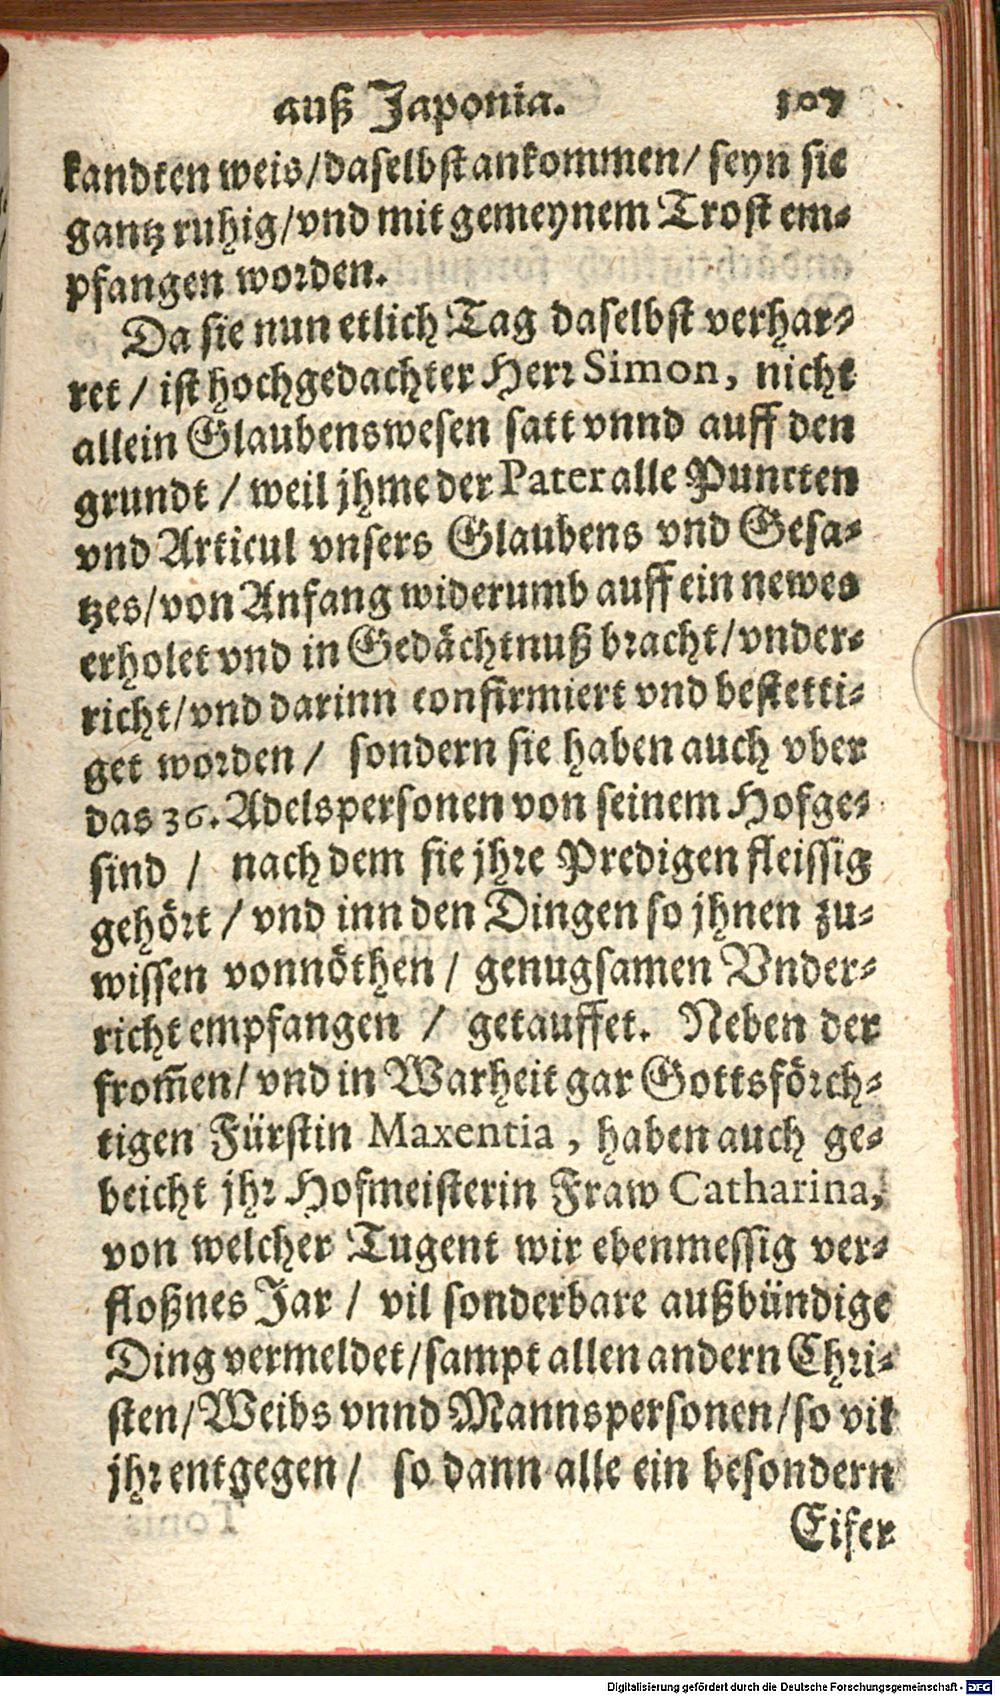 auß Japonia. 107
kandten weis/daselbst ankommen/ seyn sie
gantz ruhig/vnd mit gemeynem Trost em-
pfangen worden.
Da sie nun etlich Tag daselbst verhar-
ret / ist hochgedachter Herr Simon, nicht
allein Glaubenswesen satt vnnd auff den
grundt / weil jhme der Pater alle Puncten
vnd Articul vnsers Glaubens vnd Gesa-
tzes/von Anfang widerumb auff ein newes
erholet vnd in Gedächtnuß bracht/vnder-
richt/vnd darinn confirmiert vnd bestetti-
get worden / sondern sie haben auch vber
das 36. Adelspersonen von seinem Hofge-
sind / nach dem sie jhre Predigen fleissig
gehört / vnd inn den Dingen so jhnen zu-
wissen vonnöthen / genugsamen Vnder-
richt empfangen / getauffet. Neben der
from̃en/ vnd in Warheit gar Gottsförch-
tigen Fürstin Maxentia, haben auch ge-
beicht jhr Hofmeisterin Fraw Catharina,
von welcher Tugent wir ebenmessig ver-
floßnes Jar / vil sonderbare außbündige
Ding vermeldet/sampt allen andern Chri-
sten/Weibs vnnd Mannspersonen/so vil
jhr entgegen / so dann alle ein besondern
Eifer
Digitalisierung gefördert durch die Deutsche Forschungsgemeinschaft - DFG